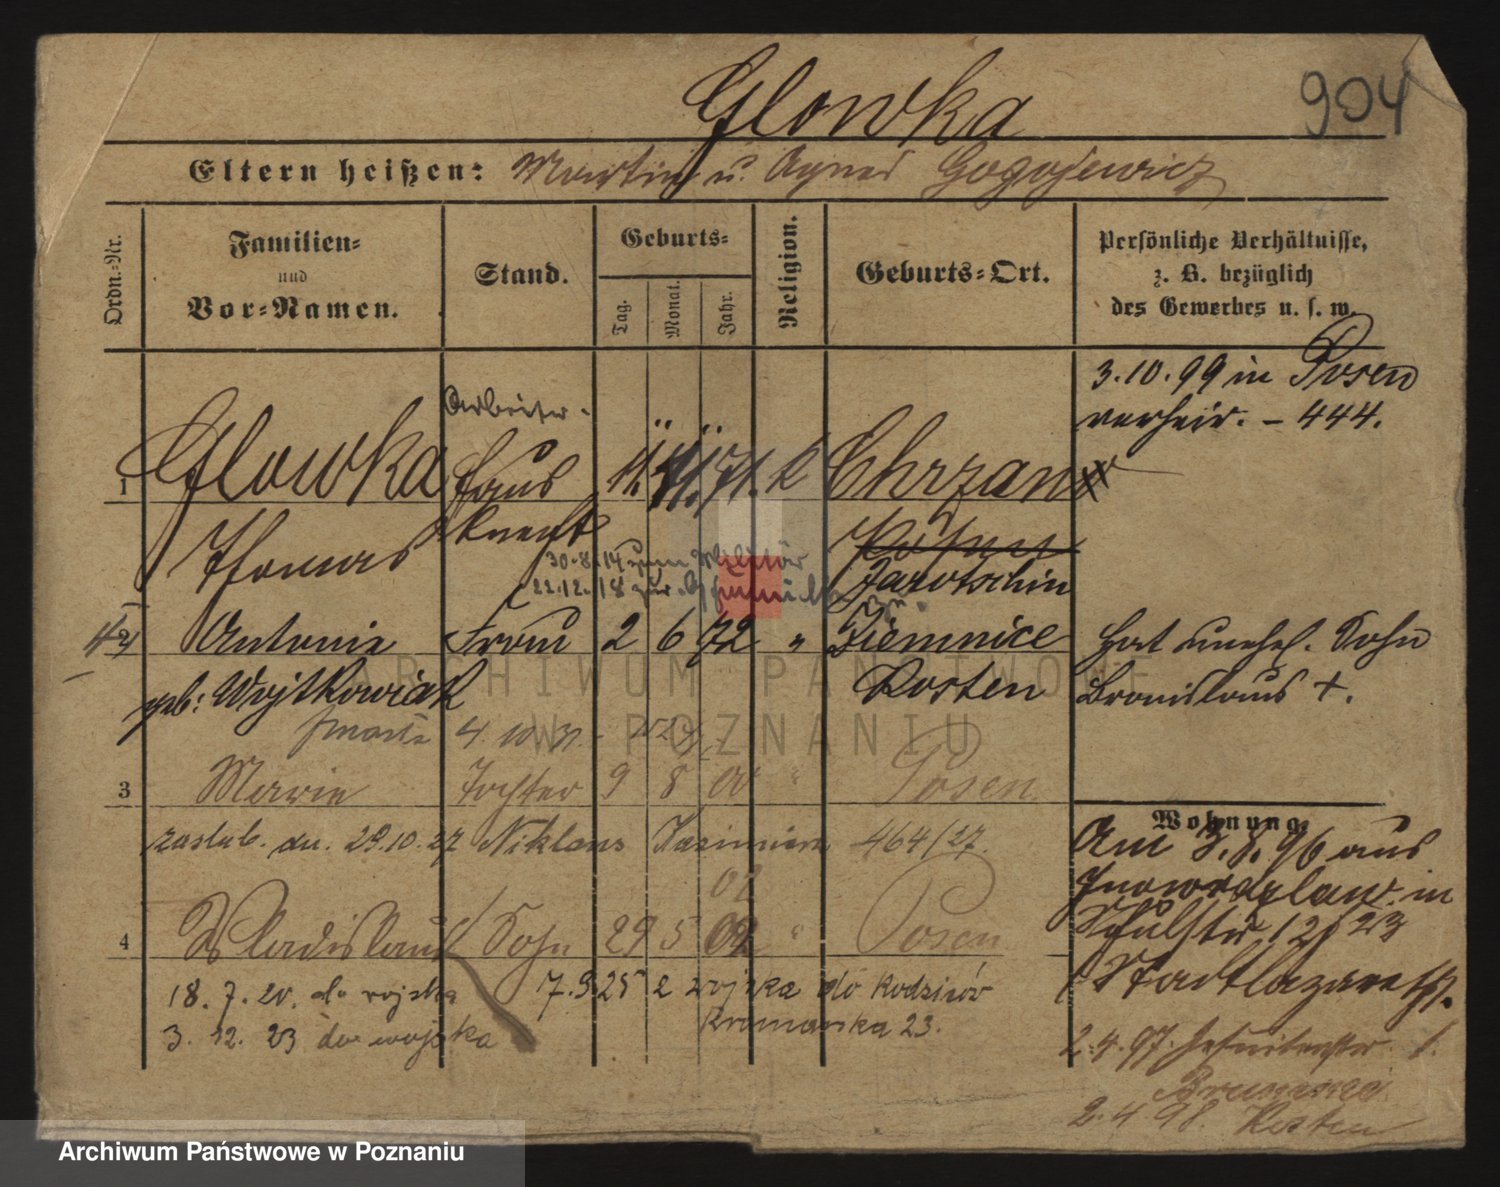 Glowka
904
Eltern heißen: Martin u. Agnes Gogojewicz
Ordn.-Nr.
Familien-
und
Vor-Namen.
Stand.
Geburts-
Tag.
Monat.
Jahr.
Religion.
Geburts-Ort.
Persönliche Verhältnisse,
z. B. bezüglich
des Gewerbes u. s. w.
3.10.99 in Posen
verheir. - 444.
Arbeiter.
1 Glowka Haus 11. 71. k Chrzan
Thomas knecht
Jarotschin
30.8.14 zum Militär
22.12.18 zur
2 Antonie Frau 2 6 72 " Ziemnice
geb: Wojtkowiak Kosten
hat unehel. Sohn
Bronislaus +.
zmarła 4. 10. 31.
3 Marie Tochter 9 8 00 " Posen
zaślub. dn. 29.10.27 Niklaus Kazimierz 464/27.
02
4 Wladislaus Sohn 29 5 02 " Posen
18. 7. 20. do wojska
7.9.25 z wojska do Rodziców
3. 12. 23 do wojska
23.
Wohnung
Am 3.8.96 aus
Inowrazlaw in
Schulstr 12/23
Stadtlazareth
2.4.97. Jesuitenstr. 1.
2.4.98. Kosten
ARCHIWUM PAŃSTWOWE
W POZNANIU
Archiwum Państwowe w Poznaniu